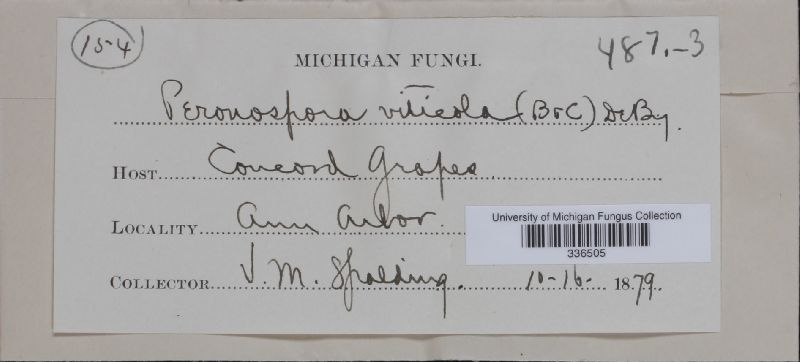 154
487.-3
MICHIGAN FUNGI.
Peronospora viticola (B&C) DeBy.
HOST Concord Grapes
LOCALITY Ann Arbor.
University of Michigan Fungus Collection
336505
COLLECTOR V. M. Spalding. 10-16- 1879.